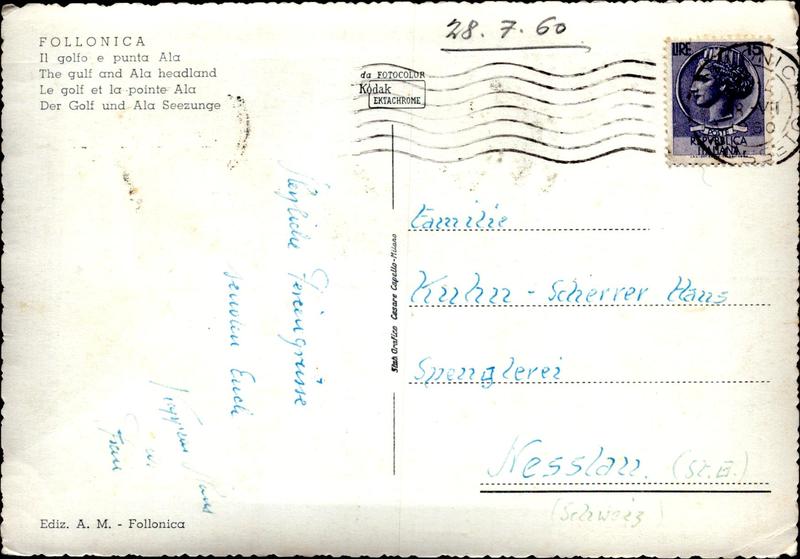 FOLLONICA
Il golfo e punta Ala
The gulf and Ala headland
Le golf et la pointe Ala
Der Golf und Ala Seezunge
28. 7. 60
da FOTOCOLOR
Kodak
EKTACHROME
LIRE 15
POSTE
REPVBBLICA
ITALIANA
Herzliche Feriengrüsse
senden Euch
Frau
Stab. Grafico Cesare Capello - Milano
Familie
Kuhn - Scherrer Hans
Spenglerei
Nesslau. (St. G.)
(Schweiz)
Ediz. A. M. - Follonica